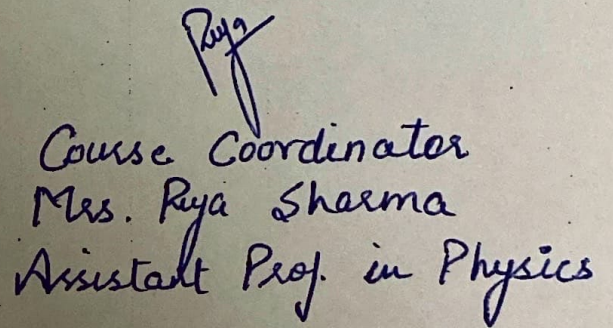 Riya
Course Coordinator
Mrs. Riya Sharma
Assistant Prof. in Physics